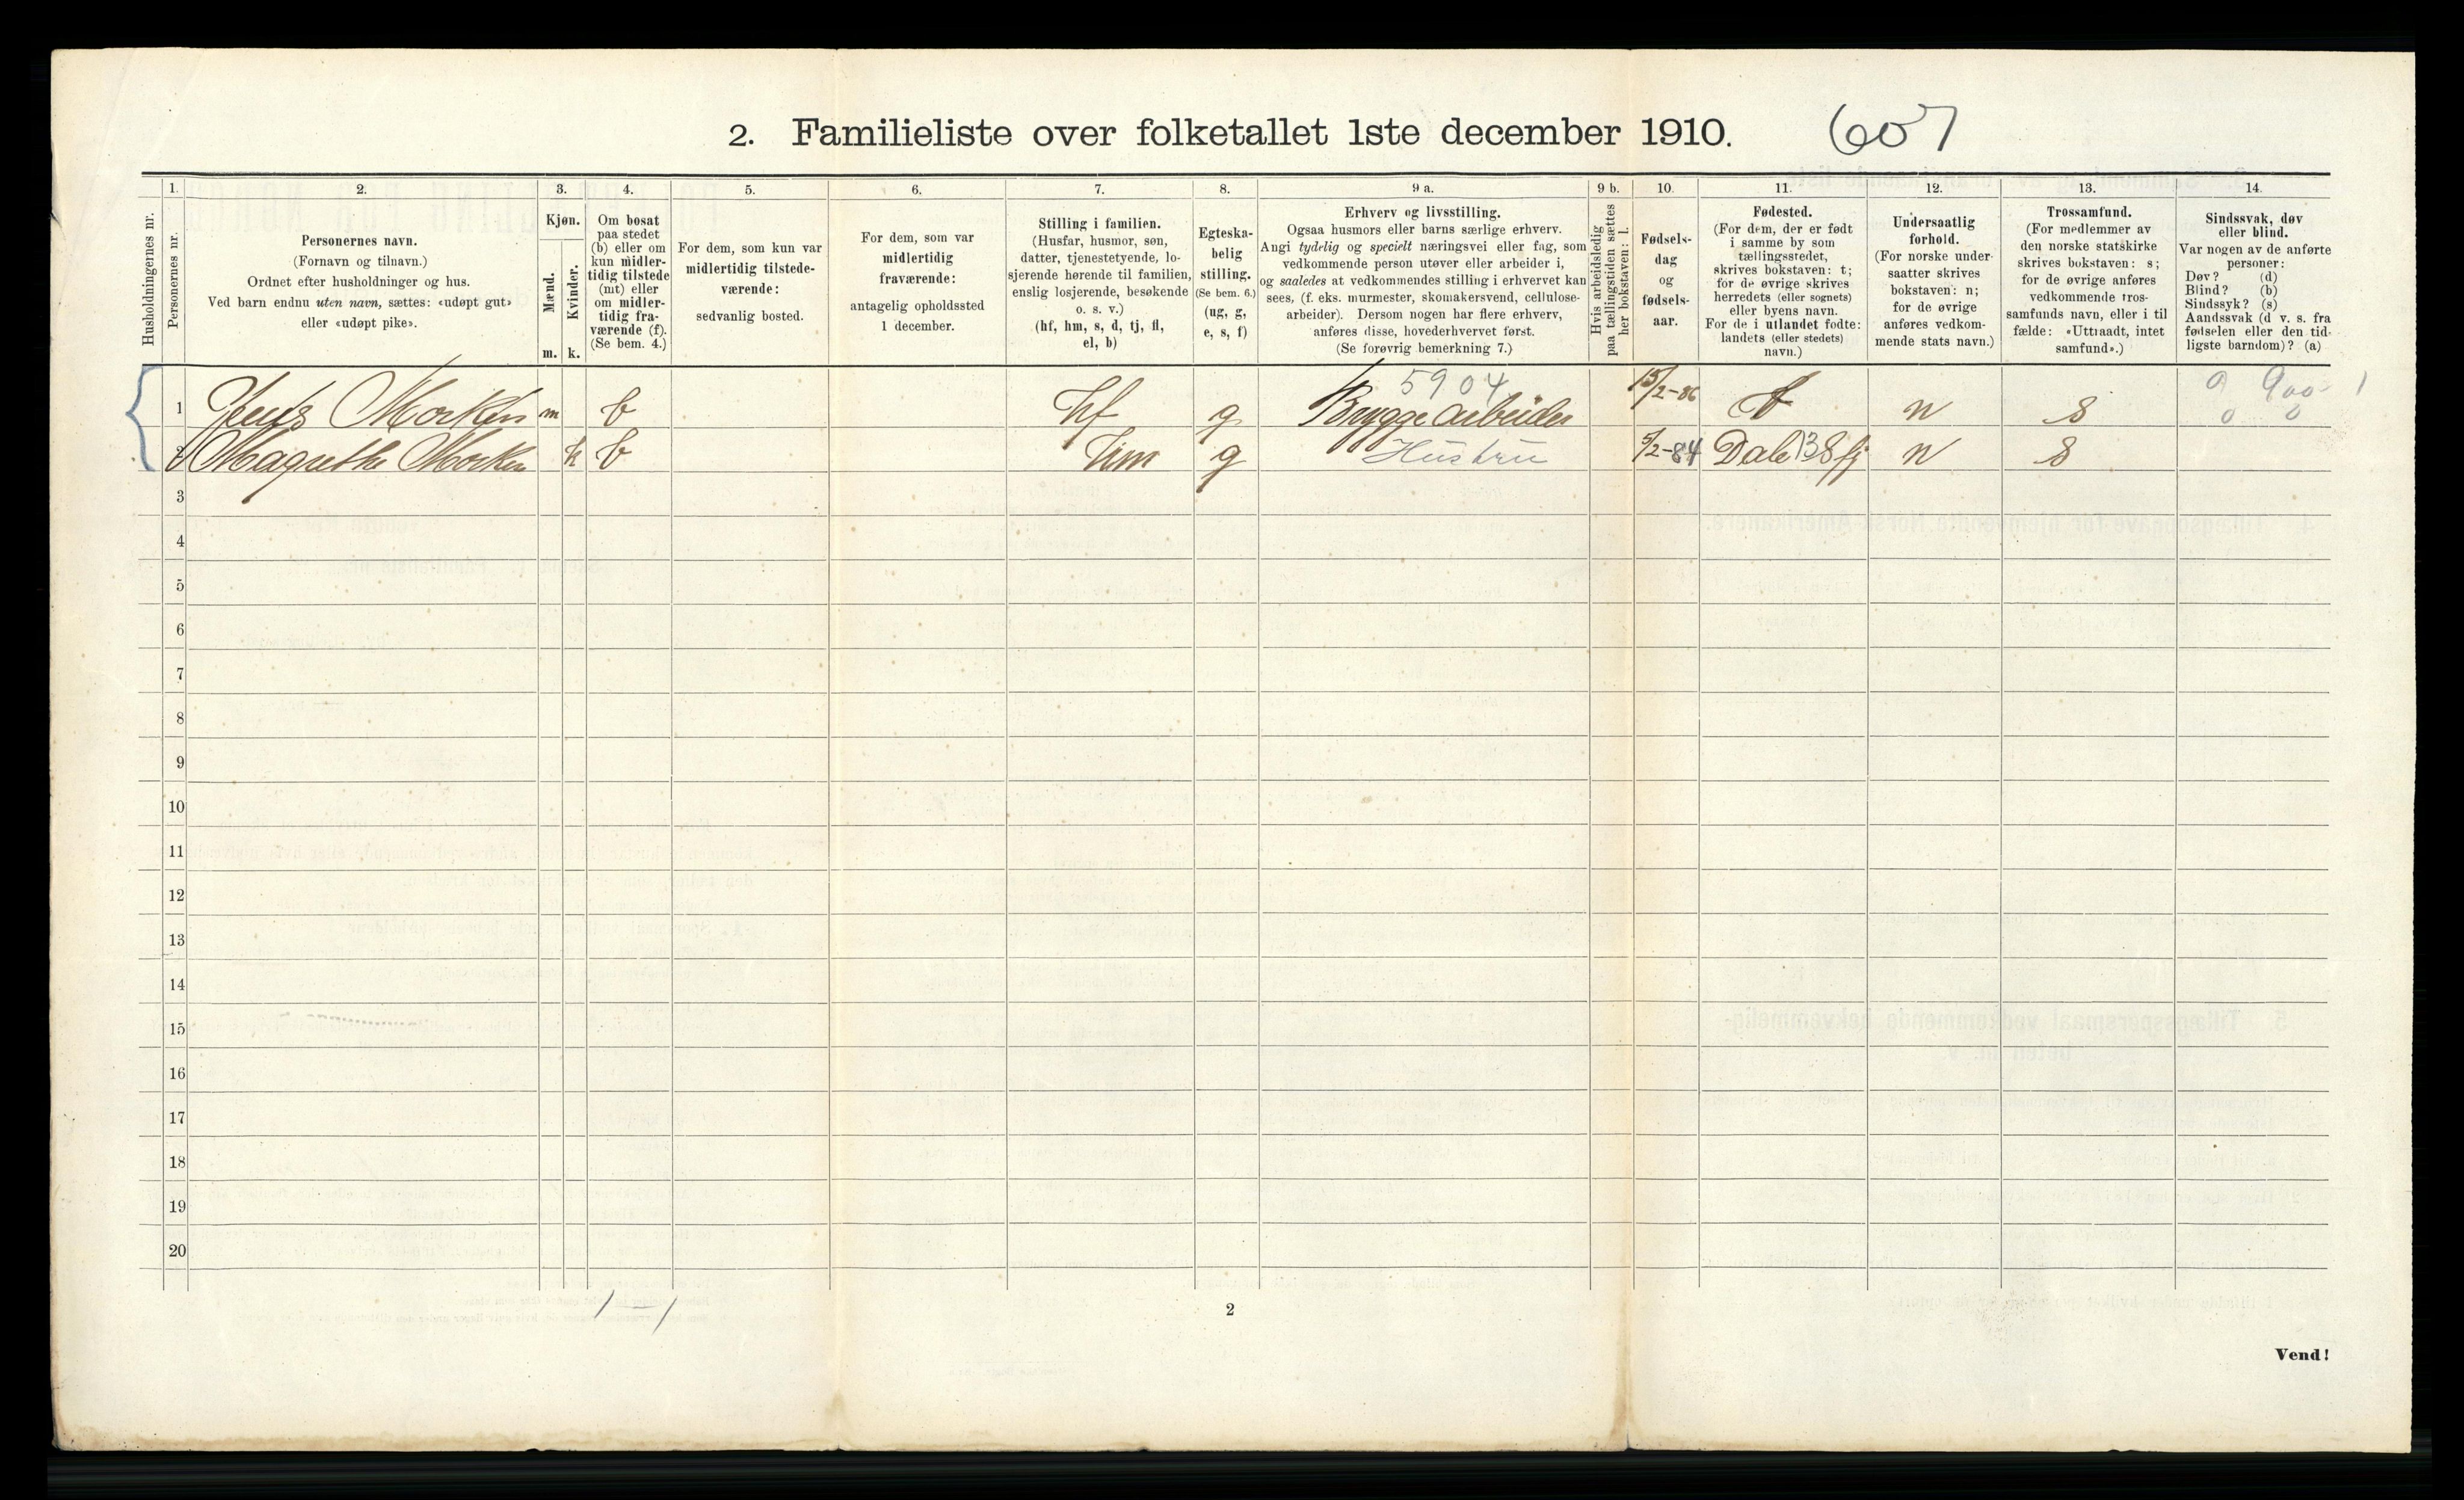 2. Familieliste over folketallet 1ste december 1910. 607
1. 2. 3. 4. 5. 6. 7. 8. 9 a. 9 b. 10. 11. 12. 13. 14.
Husholdningernes nr.
Personernes nr.
Personernes navn.
(Fornavn og tilnavn.)
Ordnet efter husholdninger og hus.
Ved barn endnu uten navn, sættes: «udøpt gut»
eller «udøpt pike».
Kjøn.
Mænd.
Kvinder.
m. k.
Om bosat
paa stedet
(b) eller om
kun midler-
tidig tilstede
(mt) eller
om midler-
tidig fra-
værende (f).
(Se bem. 4.)
For dem, som kun var
midlertidig tilstede-
værende:
sedvanlig bosted.
For dem, som var
midlertidig
fraværende:
antagelig opholdssted
1 december.
Stilling i familien.
(Husfar, husmor, søn,
datter, tjenestetyende, lo-
sjerende hørende til familien,
enslig losjerende, besøkende
o. s. v.)
(hf, hm, s, d, tj, fl,
el, b)
Egteska-
belig
stilling.
(Se bem. 6.)
(ug, g,
e, s, f)
Erhverv og livsstilling.
Ogsaa husmors eller barns særlige erhverv.
Angi tydelig og specielt næringsvei eller fag, som
vedkommende person utøver eller arbeider i,
og saaledes at vedkommendes stilling i erhvervet kan
sees, (f. eks. murmester, skomakersvend, cellulose-
arbeider). Dersom nogen har flere erhverv,
anføres disse, hovederhvervet først.
(Se forøvrig bemerkning 7.)
Hvis arbeidsledig
paa tællingstiden sættes
her bokstaven: l.
Fødsels-
dag
og
fødsels-
aar.
Fødested.
(For dem, der er født
i samme by som
tællingsstedet,
skrives bokstaven: t;
for de øvrige skrives
herredets (eller sognets)
eller byens navn.
For de i utlandet fødte:
landets (eller stedets)
navn.)
Undersaatlig
forhold.
(For norske under-
saatter skrives
bokstaven: n;
for de øvrige
anføres vedkom-
mende stats navn.)
Trossamfund.
(For medlemmer av
den norske statskirke
skrives bokstaven: s;
for de øvrige anføres
vedkommende tros-
samfunds navn, eller i til-
fælde: «Uttraadt, intet
samfund».)
Sindssvak, døv
eller blind.
Var nogen av de anførte
personer:
Døv? (d)
Blind? (b)
Sindssyk? (s)
Aandssvak (d v. s. fra
fødselen eller den tid-
ligste barndom)? (a)
5904
1 Jens Morken m b hf g Bryggearbeider 15/2-86 t n s
2 Magrethe Morken k b hm g Hustru 5/2-84 Dale Sfj n s
3
4
5
6
7
8
9
10
11
12
13
14
15
16
17
18
19
20
1 - 1
2
Vend!